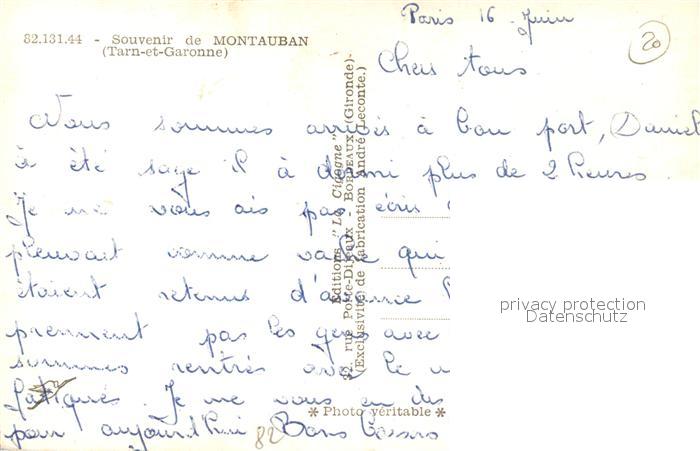 Paris 16 Juin
20
82.131.44 - Souvenir de MONTAUBAN
(Tarn-et-Garonne)
Chers tous
Nous sommes arrivés à bon port, Daniel
à été sage il à dormi plus de 2 heures.
Je ne vous ais pas écris
pleuvait comme vache qui
étaient retenus d'avance
prennent pas les gens avec
sommes rentrés avec le
fatigués. Je ne vous en dis
pour aujourd'hui Bons baisers
82
Editions "La Cigogne"
32, rue Porte-Dijeaux - BORDEAUX (Gironde)-
(Exclusivité de Fabrication André Leconte.)
* Photo véritable *
privacy protection
Datenschutz